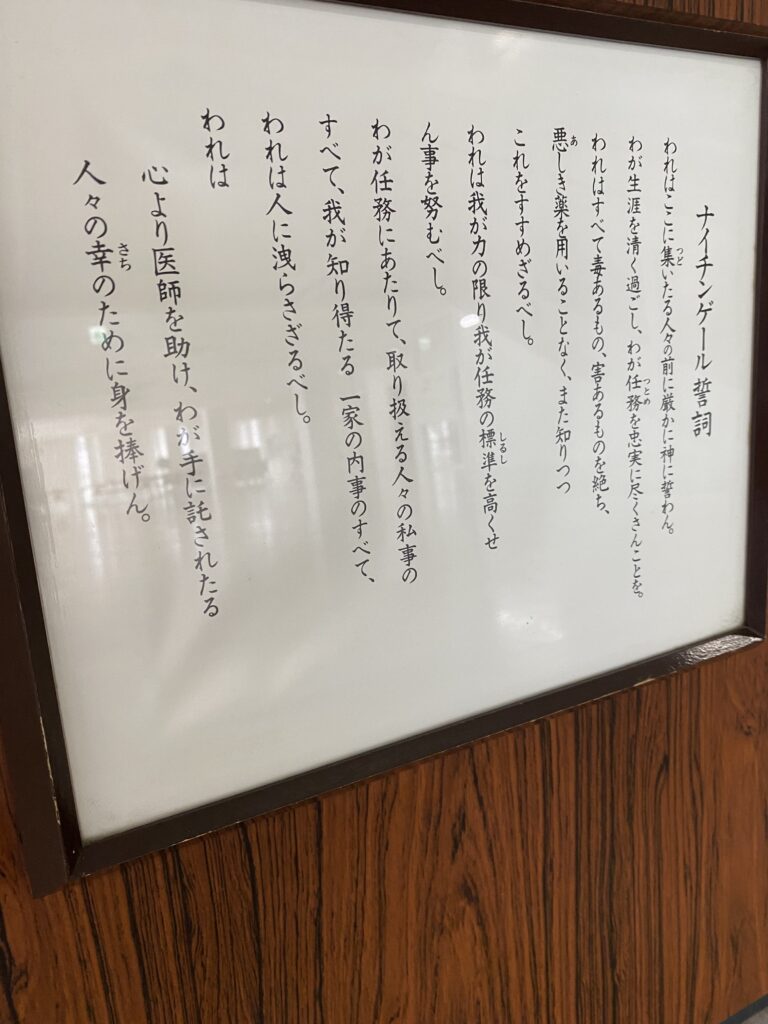 ナイチンゲール誓詞
われはここに集いたる人々の前に厳かに神に誓わん。
わが生涯を清く過ごし、わが任務を忠実に尽くさんことを。
われはすべて毒あるもの、害あるものを絶ち、
悪しき薬を用いることなく、また知りつつ
これをすすめざるべし。
われは我が力の限り我が任務の標準を高くせ
ん事を努むべし。
わが任務にあたりて、取り扱える人々の私事の
すべて、我が知り得たる 一家の内事のすべて、
われは人に洩らさざるべし。
われは
心より医師を助け、わが手に託されたる
人々の幸のために身を捧げん。